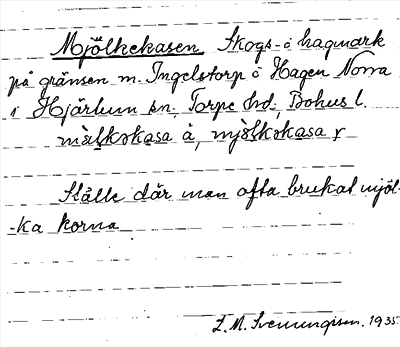 Mjölkekasen Skogs- o hagmark
på gränsen m. Ingelstorp o Hagen Norra
i Hjärtum sn, Torpe hd, Bohus l.
mjölkekasa å, mjölkekasa
Ställe där man ofta brukat mjöl-
-ka korna
E. M. Svenungsson. 1935